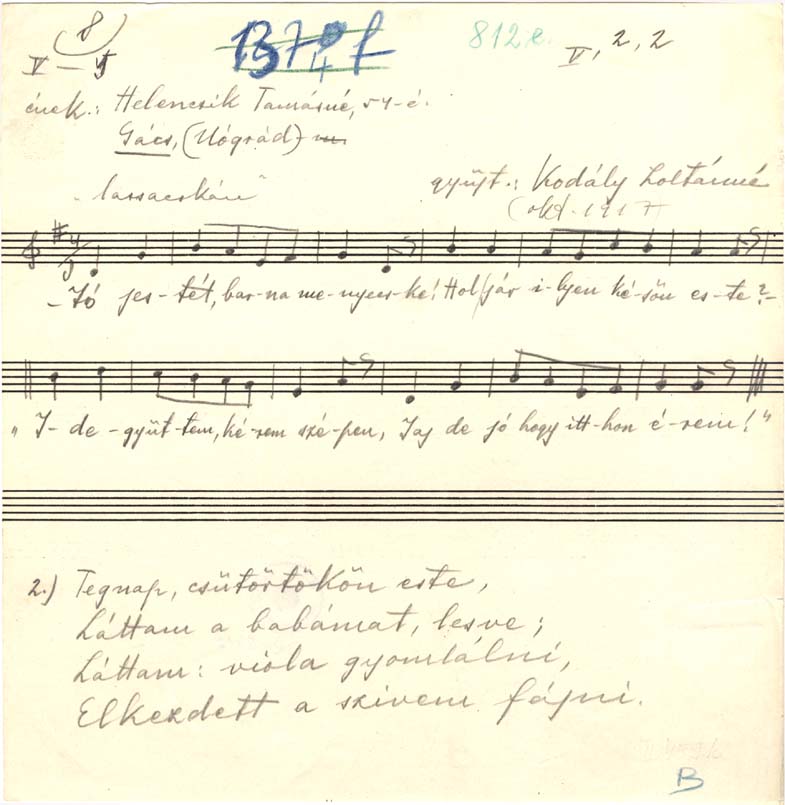 8)
V – 5
1374 f
812 e.
V, 2, 2
ének.: Helencsik Tamásné, 54-é.
Gács, (Nógrád)
"lassacskán"
gyűjt.: Kodály Zoltánné
(okt. 1917)
– Jó jes-tét, bar-na me-nyecs-ke! Hol jár i-lyen ké-sőn es-te? –
„I-de-gyüt-tem, ké-rem szé-pen, Jaj de jó hogy itt-hon é-rem!"
2.) Tegnap, csütörtökön este,
Láttam a babámat, lesve;
Láttam: viola gyomlálni,
Elkezdett a szivem fájni.
B